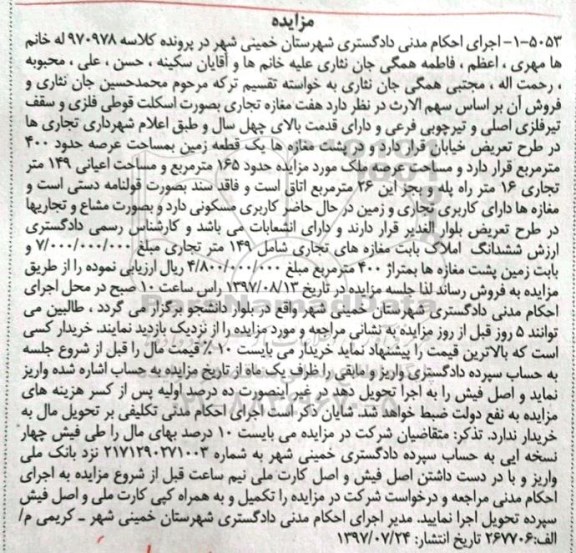 مزایده
۱-۵۰۵۳- اجرای احکام مدنی دادگستری شهرستان خمینی شهر در پرونده کلاسه ۹۷۰۹۷۸ له خانم
ها مهری ، اعظم ، فاطمه همگی جان نثاری علیه خانم ها و آقایان سکینه ، حسن ، علی ، محبوبه
، رحمت اله ، مجتبی همگی جان نثاری به خواسته تقسیم ترکه مرحوم محمدحسین جان نثاری و
فروش آن بر اساس سهم الارث در نظر دارد هفت مغازه تجاری بصورت اسکلت قوطی فلزی و سقف
تیرفلزی اصلی و تیرچوبی فرعی و دارای قدمت بالای چهل سال و طبق اعلام شهرداری تجاری ها
در طرح تعریض خیابان قرار دارد و در پشت مغازه ها یک قطعه زمین بمساحت عرصه حدود ۴۰۰
مترمربع قرار دارد و مساحت عرصه ملک مورد مزایده حدود ۱۶۵ مترمربع و مساحت اعیانی ۱۴۹ متر
تجاری ۱۶ متر راه پله و بجز این ۲۶ مترمربع اتاق است و فاقد سند بصورت قولنامه دستی است و
مغازه ها دارای کاربری تجاری و زمین در حال حاضر کاربری مسکونی دارد و بصورت مشاع و تجاریها
در طرح تعریض بلوار الغدیر قرار دارند و دارای انشعابات می باشد و کارشناس رسمی دادگستری
ارزش ششدانگ املاک بابت مغازه های تجاری شامل ۱۴۹ متر تجاری مبلغ ۷/۰۰۰/۰۰۰/۰۰۰ و
بابت زمین پشت مغازه ها بمتراژ ۴۰۰ مترمربع مبلغ ۴/۸۰۰/۰۰۰/۰۰۰ ریال ارزیابی نموده را از طریق
مزایده به فروش رساند لذا جلسه مزایده در تاریخ ۱۳۹۷/۰۸/۱۳ راس ساعت ۱۰ صبح در محل اجرای
احکام مدنی دادگستری شهرستان خمینی شهر واقع در بلوار دانشجو برگزار می گردد ، طالبین می
توانند ۵ روز قبل از روز مزایده به نشانی مراجعه و مورد مزایده را از نزدیک بازدید نمایند. خریدار کسی
است که بالاترین قیمت را پیشنهاد نماید خریدار می بایست ۱۰ ٪ قیمت مال را قبل از شروع جلسه
به حساب سپرده دادگستری واریز و مابقی را ظرف یک ماه از تاریخ مزایده به حساب اشاره شده واریز
نماید و اصل فیش را به اجرا تحویل دهد در غیر اینصورت ده درصد اولیه پس از کسر هزینه های
مزایده به نفع دولت ضبط خواهد شد. شایان ذکر است اجرای احکام مدنی تکلیفی بر تحویل مال به
خریدار ندارد. تذکر: متقاضیان شرکت در مزایده می بایست ۱۰ درصد بهای مال را طی فیش چهار
نسخه ایی به حساب سپرده دادگستری خمینی شهر به شماره ۲۱۷۱۲۹۰۲۷۱۰۰۳ نزد بانک ملی
واریز و با در دست داشتن اصل فیش و اصل کارت ملی نیم ساعت قبل از شروع مزایده به اجرای
احکام مدنی مراجعه و درخواست شرکت در مزایده را تکمیل و به همراه کپی کارت ملی و اصل فیش
سپرده تحویل اجرا نمایید. مدیر اجرای احکام مدنی دادگستری شهرستان خمینی شهر - کریمی م/
الف:۲۶۷۷۰۶ تاریخ انتشار: ۱۳۹۷/۰۷/۲۴